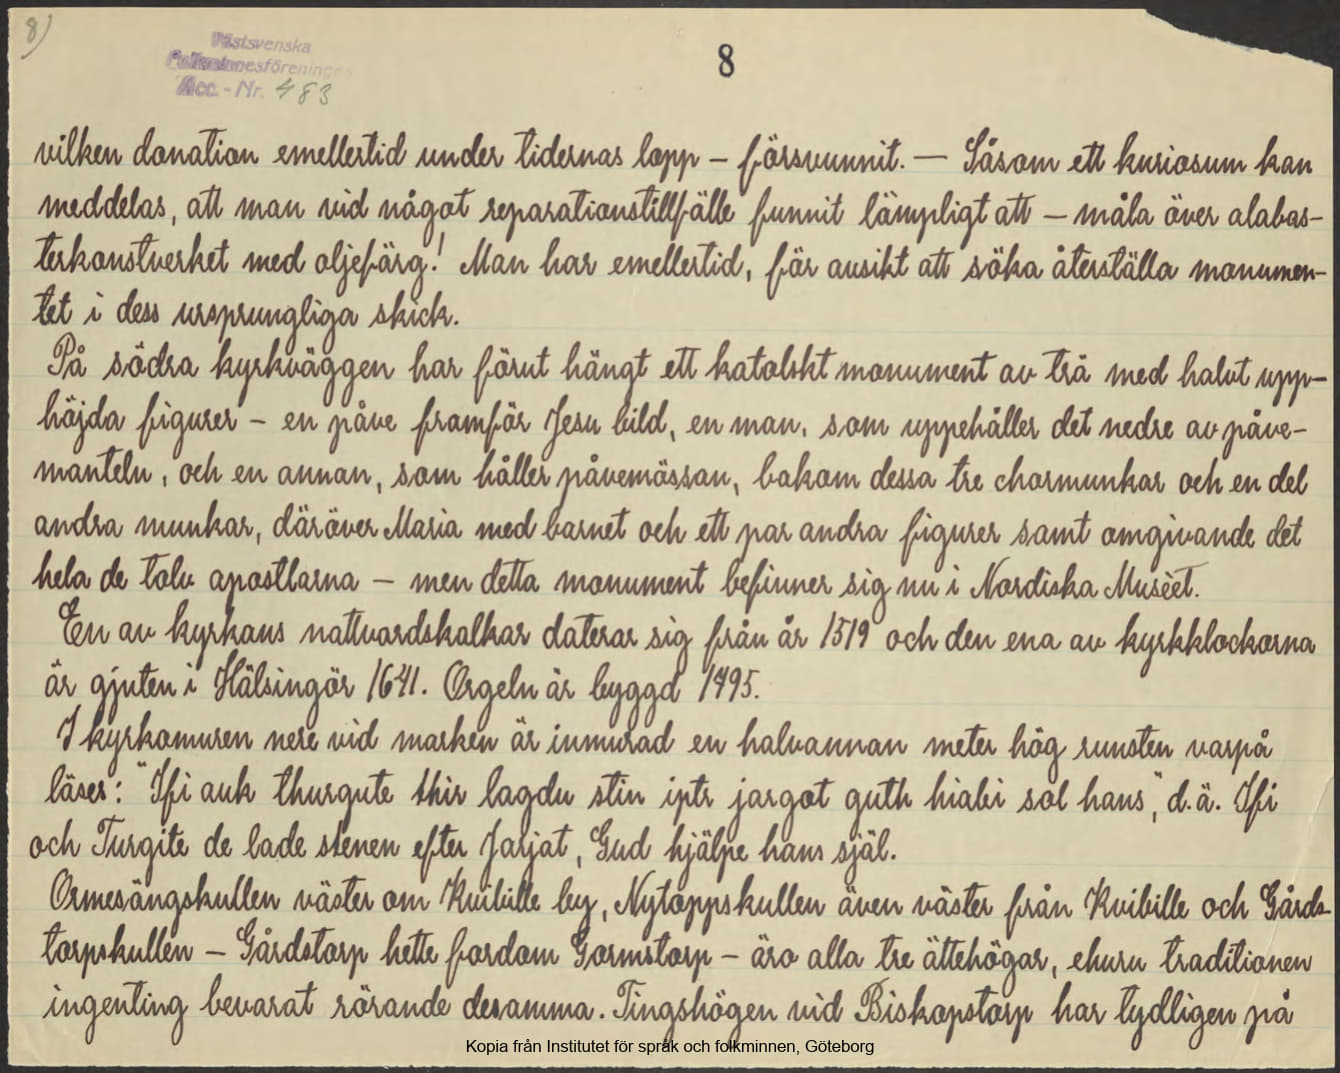 8)
Västsvenska
Folkminnesföreningen
Acc. - Nr. 483
8
vilken donation emellertid under tidernas lopp – försvunnit. — Såsom ett kuriosum kan
meddelas, att man vid något reparationstillfälle funnit lämpligt att – måla över alabas-
terkonstverket med oljefärg! Man har emellertid, för avsikt att söka återställa monumen-
tet i dess ursprungliga skick.
På södra kyrkväggen har förut hängt ett katolskt monument av trä med halvt upp-
höjda figurer – en påve framför Jesu bild, en man, som uppehåller det nedre av påve-
manteln, och en annan, som håller påvemössan, bakom dessa tre chormunkar och en del
andra munkar, däröver Maria med barnet och ett par andra figurer samt omgivande det
hela de tolv apostlarna – men detta monument befinner sig nu i Nordiska Muséet.
En av kyrkans nattvardskalkar daterar sig från år 1519 och den ena av kyrkklockorna
är gjuten i Hälsingör 1641. Orgeln är byggd 1795.
I kyrkomuren nere vid marken är inmurad en halvannan meter hög runsten varpå
läses: "Ifi auk thurgute thir lagdu stin iptr jargot guth hialbi sol hans", d.ä. Ifi
och Turgite de lade stenen efter Jarjat, Gud hjälpe hans själ.
Ormesängskullen väster om Kvibille by, Nytoppskullen även väster från Kvibille och Gårds-
torpskullen – Gårdstorp hette fordom Gormstorp – äro alla tre ättehögar, ehuru traditionen
ingenting bevarat rörande desamma. Tingshögen vid Biskopstorp har tydligen på
Kopia från Institutet för språk och folkminnen, Göteborg